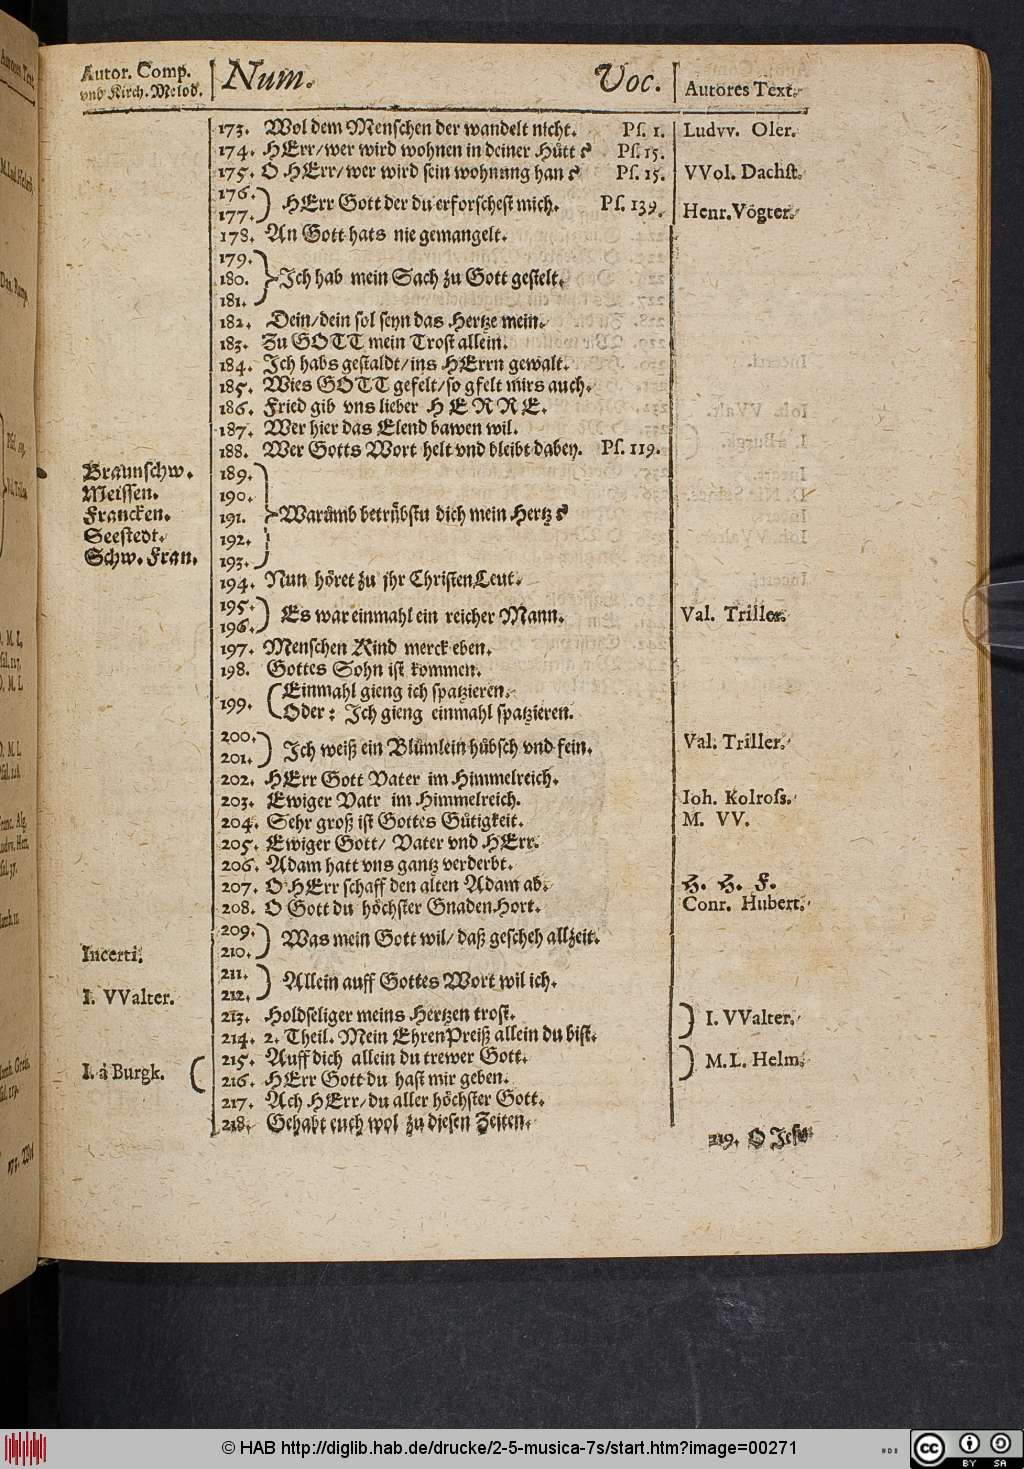 Autor. Comp.
vnd Kirch. Melod.
Num.
Voc.
Autores Text.
173. Wol dem Menschen der wandelt nicht. Ps. 1. Ludvv. Oler.
174. HErr/wer wird wohnen in deiner Hütt? Ps. 15.
175. O HErr/wer wird sein wohnung han? Ps. 15. VVol. Dachst.
176.
177. HErr Gott der du erforschest mich. Ps. 139. Henr. Vögter.
178. An Gott hats nie gemangelt.
179.
180. Ich hab mein Sach zu Gott gestelt.
181.
182. Dein/dein sol seyn das Hertze mein.
183. Zu GOTT mein Trost allein.
184. Ich habs gestaldt/ins HErrn gewalt.
185. Wies GOTT gefelt/so gfelt mirs auch.
186. Fried gib vns lieber HERRE.
187. Wer hier das Elend bawen wil.
188. Wer Gotts Wort helt vnd bleibt dabey. Ps. 119.
Braunschw. 189.
Meissen. 190.
Francken. 191. Warůmb betrübstu dich mein Hertz?
Seestedt. 192.
Schw. Fran. 193.
194. Nun höret zu jhr Christen Leut.
195.
196. Es war einmahl ein reicher Mann. Val. Triller.
197. Menschen Kind merck eben.
198. Gottes Sohn ist kommen.
199. Einmahl gieng ich spatzieren.
Oder: Ich gieng einmahl spatzieren.
200.
201. Ich weiß ein Blümlein hübsch vnd fein. Val. Triller.
202. HErr Gott Vater im Himmelreich.
203. Ewiger Vatr im Himmelreich. Ioh. Kolross.
204. Sehr groß ist Gottes Gütigkeit. M. VV.
205. Ewiger Gott/ Vater vnd HErr.
206. Adam hatt vns gantz verderbt.
207. O HErr schaff den alten Adam ab. H. H. F.
208. O Gott du höchster Gnaden Hort. Conr. Hubert.
209.
210. Was mein Gott wil/ daß gescheh allzeit.
Incerti.
211.
212. Allein auff Gottes Wort wil ich.
I. VValter.
213. Holdseliger meins Hertzen trost.
214. 2. Theil. Mein Ehren Preiß allein du bist. I. VValter.
215. Auff dich allein du trewer Gott.
216. HErr Gott du hast mir geben. M. L. Helm.
I. à Burgk.
217. Ach HErr/du aller höchster Gott.
218. Gehabt euch wol zu diesen Zeiten.
219. O Jesu
© HAB http://diglib.hab.de/drucke/2-5-musica-7s/start.htm?image=00271
cc BY SA